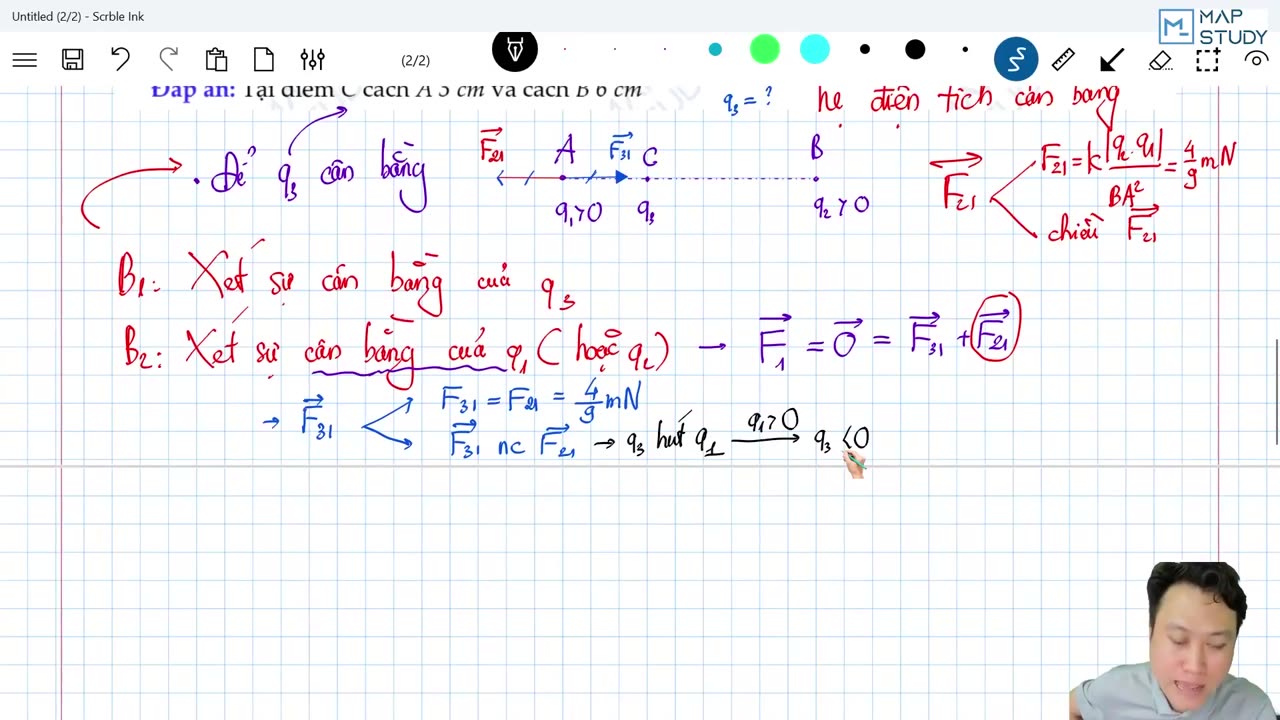 Untitled (2/2) - Scrble Ink
MAP STUDY
(2/2)
Đáp án: Tại điểm C cách A 3 cm và cách B 6 cm
q₃ = ? hệ điện tích cân bằng
. Để q₃ cân bằng
F₂₁ A F₃₁ C B
q₁>0 q₃ q₂>0
F₂₁ F₂₁ = k|q₂.q₁|/BA² = 4/9 mN
chiều F₂₁
B₁: Xét sự cân bằng của q₃
B₂: Xét sự cân bằng của q₁ (hoặc q₂) → F₁ = 0 = F₃₁ + F₂₁
→ F₃₁ F₃₁ = F₂₁ = 4/9 mN
F₃₁ nc F₂₁ → q₃ hút q₁ q₁>0 → q₃ <0